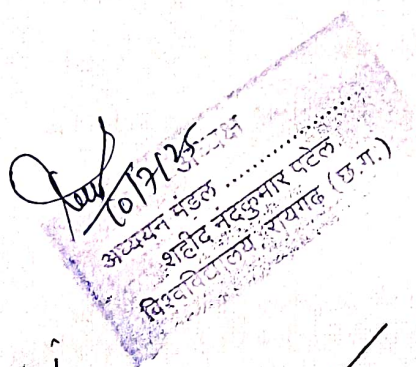 10/7/25
अध्यक्ष
अध्ययन मंडल ....................
शहीद नंदकुमार पटेल
विश्वविद्यालय, रायगढ़ (छ.ग.)